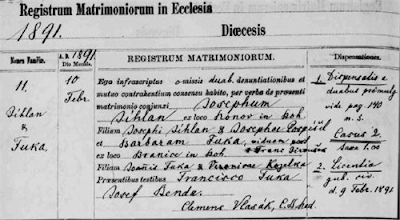 Registrum Matrimoniorum in Ecclesia
Diœcesis
1891.
Nomen Familiæ.
A. D. 1891.
Die Mensis.
REGISTRUM MATRIMONIORUM.
Dispensationes.
11.
Sihlan
&
Fuka.
10
Febr.
Ego infrascriptus omissis duab. denuntiationibus et
mutuo contrahentium consensu habito, per verba de præsenti
matrimonio conjunxi Josephum
Sihlan ex loco Honov in Boh
Filium Josephi Sihlan & Josephæ Pospišil
et Barbaram Fuka, viduam
ex loco Branice in Boh
Filiam Joannis Fuka & Veronicæ Kazelka
Præsentibus testibus Francisco Fuka
Josef Benda.
Clemens Vlasák, C.SS.Red.
1. Dispensatio a
duabus promulg
vide pag. 140
n. 5.
Casus 2.
taxa 1.00
2. Licentia
gub. civ.
d. 9 Febr. 1891